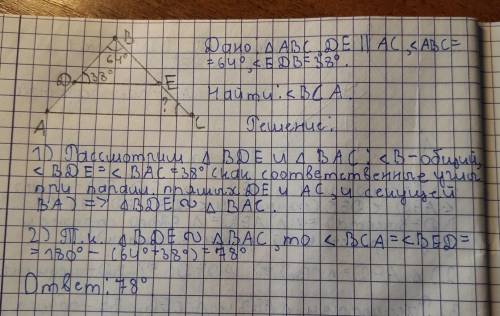 B
64°
D
38°
E
?
A
C
Дано, △ ABC, DE || AC, <ABC=
= 64°, <EDB=38°.
Найти: <BCA.
Решение:
1) Рассмотрим △ BDE и △ BAC: <B-общий,
<BDE=<BAC=38° (как соответственные углы
при паралл. прямых DE и AC, и секущей
BA) => △BDE ∾ △ BAC.
2) Т.к. △ BDE ∾ △BAC, то < BCA=<BED=
= 180° - (64°+38°)=78°
Ответ: 78°